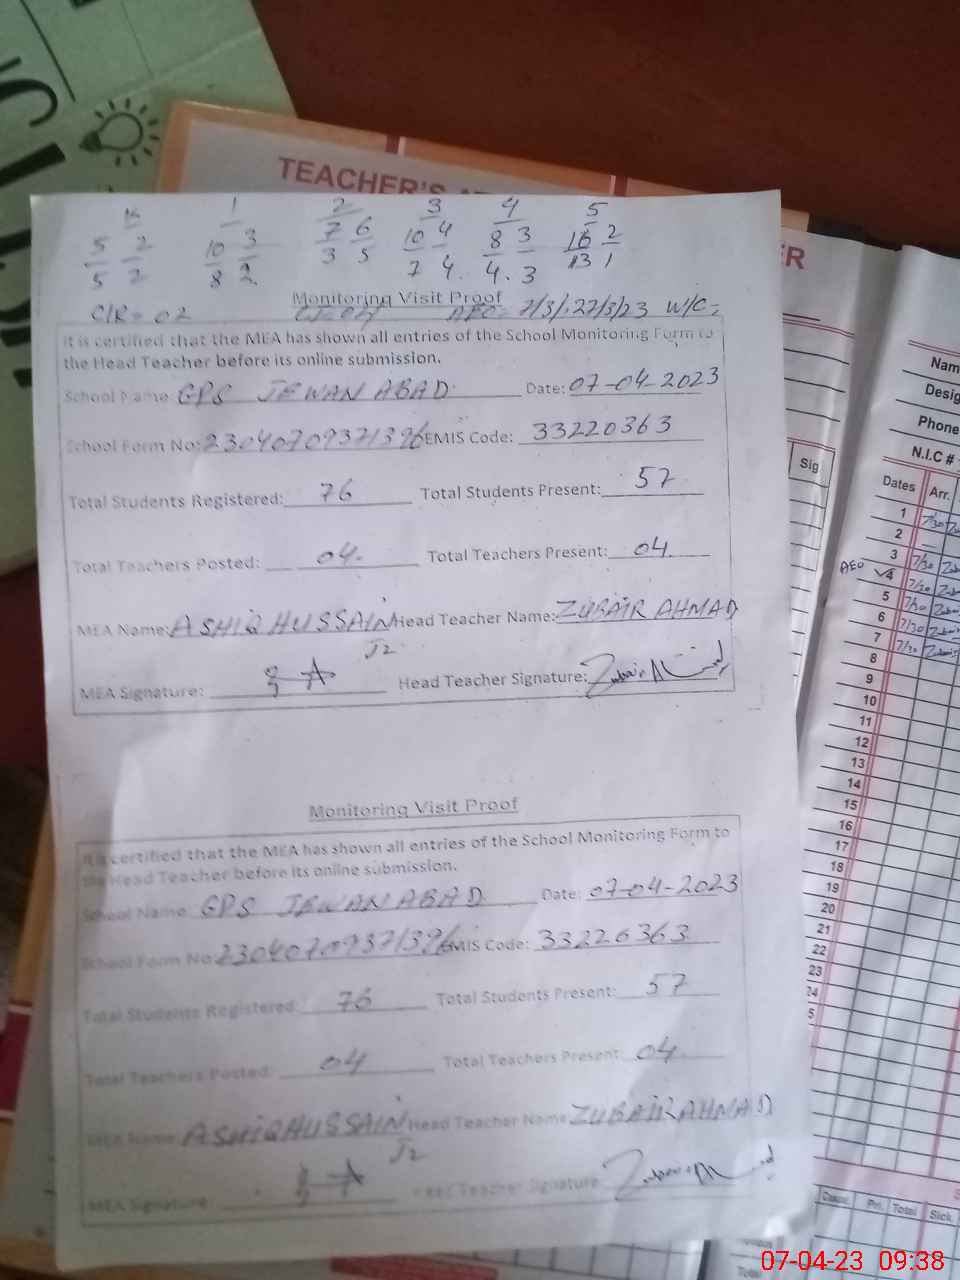 TEACHER'S
K 1 2 3 4 5
5 2 10 3 7 6 10 4 8 3 16 2
5 2 8 2 3 5 7 4. 4. 3 13 1
Monitoring Visit Proof
C/R = 02 AEO = 7/3/.27/3/23 W/C=
It is certified that the MEA has shown all entries of the School Monitoring Form to
the Head Teacher before its online submission.
School Name: GPS JEWAN ABAD Date: 07-04-2023
School Form No: 23040709371396 EMIS Code: 33220363
Total Students Registered: 76 Total Students Present: 57
Total Teachers Posted: 04 Total Teachers Present: 04
MEA Name: ASHIQ HUSSAIN Head Teacher Name: ZUBAIR AHMAD
J2
MEA Signature: Head Teacher Signature:
Monitoring Visit Proof
It is certified that the MEA has shown all entries of the School Monitoring Form to
the Head Teacher before its online submission.
School Name: GPS JEWAN ABAD Date: 07-04-2023
School Form No 23040709371396 EMIS Code: 33220363
Total Students Registered: 76 Total Students Present: 57
Total Teachers Posted: 04 Total Teachers Present: 04
MEA Name: ASHIQ HUSSAIN Head Teacher Name ZUBAIR AHMAD
J2
MEA Signature: Head Teacher Signature:
ER
Nam
Desig
Phone
N.I.C #
Sig.
Dates Arr.
1 7/30
2
3 7/30
AEO 4 7/30
5 7/30
6 7/30
7 7/30
8
9
10
11
12
13
14
15
16
17
18
19
20
21
22
23
24
5
Pri. Total Sick.
07-04-23 09:38